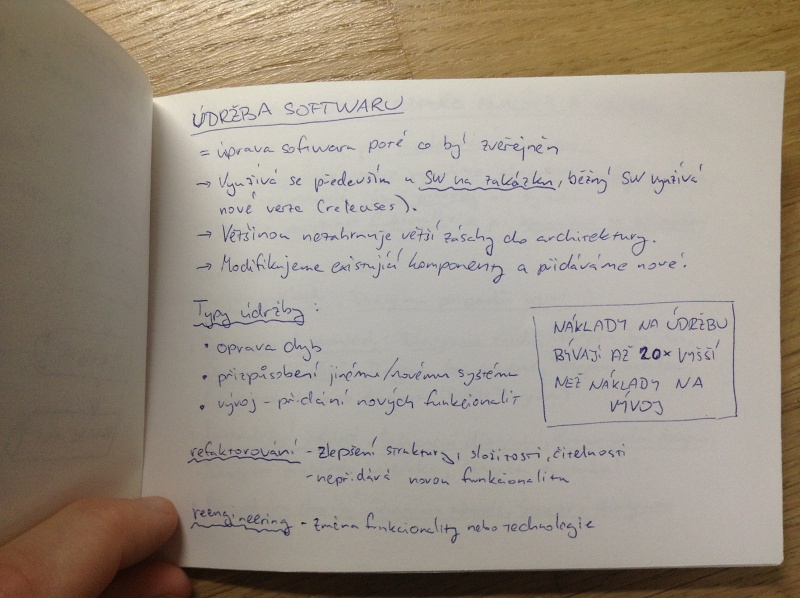 ÚDRŽBA SOFTWARU
= úprava softwaru poté co byl zveřejněn
→ Využívá se především u SW na zakázku, běžný SW využívá
nové verze (releases).
→ Většinou nezahrnuje větší zásahy do architektury.
→ Modifikujeme existující komponenty a přidáváme nové.
Typy údržby:
• oprava chyb
• přizpůsobení jinému/novému systému
• vývoj - přidání nových funkcionalit
NÁKLADY NA ÚDRŽBU
BÝVAJÍ AŽ 20× VYŠŠÍ
NEŽ NÁKLADY NA
VÝVOJ
refaktorování - zlepšení struktury, složitosti, čitelnosti
- nepřidává novou funkcionalitu
reengineering - změna funkcionality nebo technologie